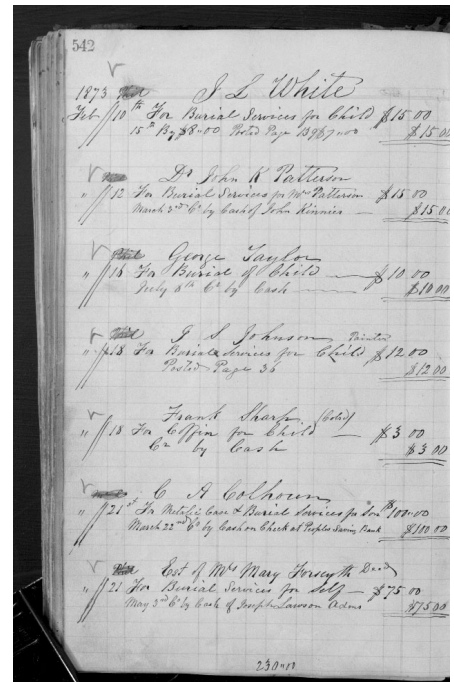 542
1873 J L White
Feb 10th For Burial Services for Child $15 00
15th By $8"00 Posted Page 139 $7"00 $15 00
Dr John K Patterson
" 12 For Burial Services for Mrs Patterson $15 00
March 3rd Cr by Cash of John Kinnier — $15 00
George Taylor
" 16 For Burial of Child — $10 00
July 8th Cr by Cash — $10.00
J S Johnson Painter
" 18 For Burial Services for Child $12 00
Posted Page 36 $12 00
Frank Sharp (Cold)
" 18 For Coffin for Child — $3 00
Cr by Cash $3 00
C A Colhoun
" 21st For Metalic Case & Burial Services for Son $100"00
March 22nd Cr by Cash on Check at Peoples Savins Bank $100.00
Est of Mrs Mary Forsyth Dead
" 21 For Burial Services for Self — $75 00
May 3rd Cr by Cash of Joseph Lawson Adms $75.00
230"00